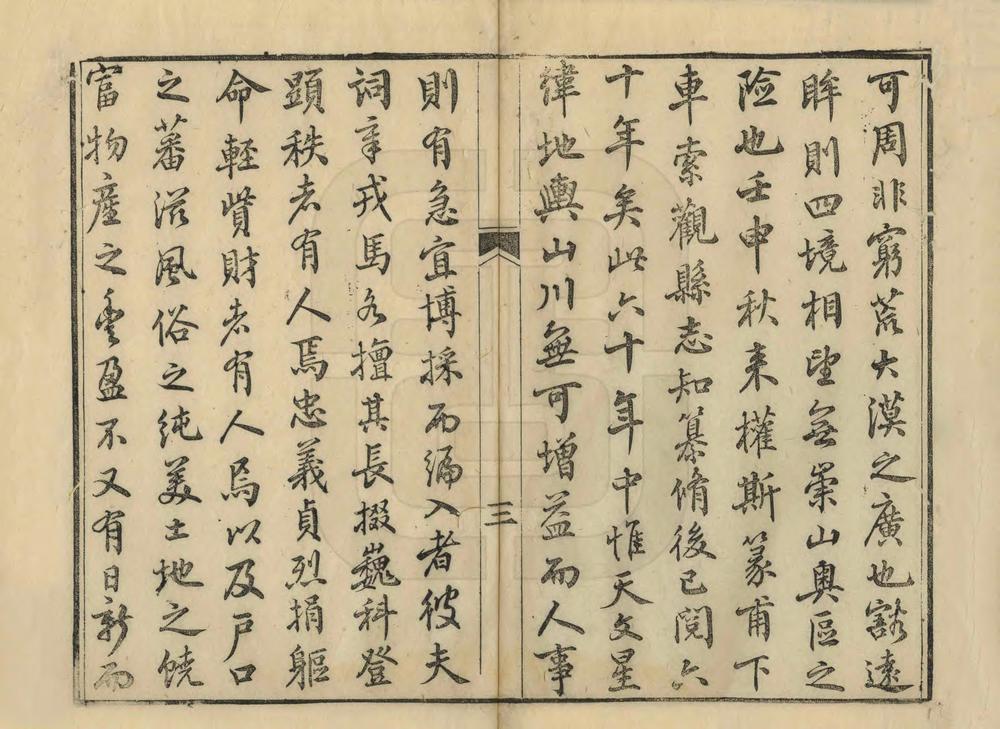 可周非窮荒大漠之廣也豁遠
眸則四境相望無崇山奧區之
險也壬申秋来權斯篆甫下
車索觀縣志知纂脩後已閱六
十年矣此六十年中惟天文星
緯地輿山川無可增益而人事
三
則有急宜博採而編入者彼夫
詞章戎馬各擅其長掇巍科登
顕秩者有人焉忠義貞烈捐軀
命輕貲財者有人焉以及戸口
之蕃滋風俗之純美土地之饒
富物産之盈不又有日新而